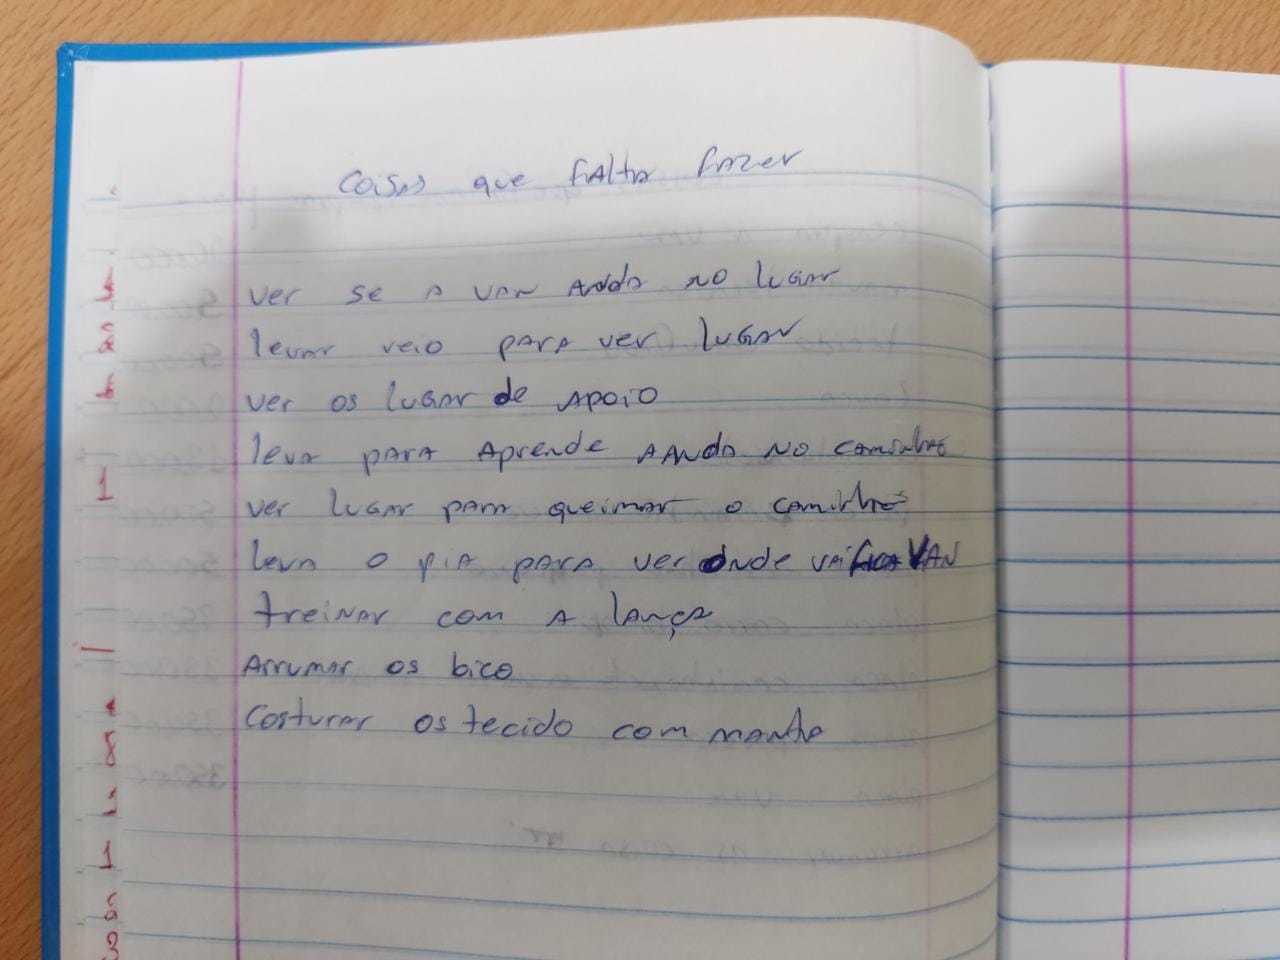 Coisas que falta fazer
ver se a van anda no lugar
levar veio para ver lugar
ver os lugar de apoio
leva para aprende aanda no caminhão
ver lugar para queimar o caminhão
leva o pia para ver onde vai fica VAN
treinar com a lança
Arrumar os bico
Costurar os tecido com manta